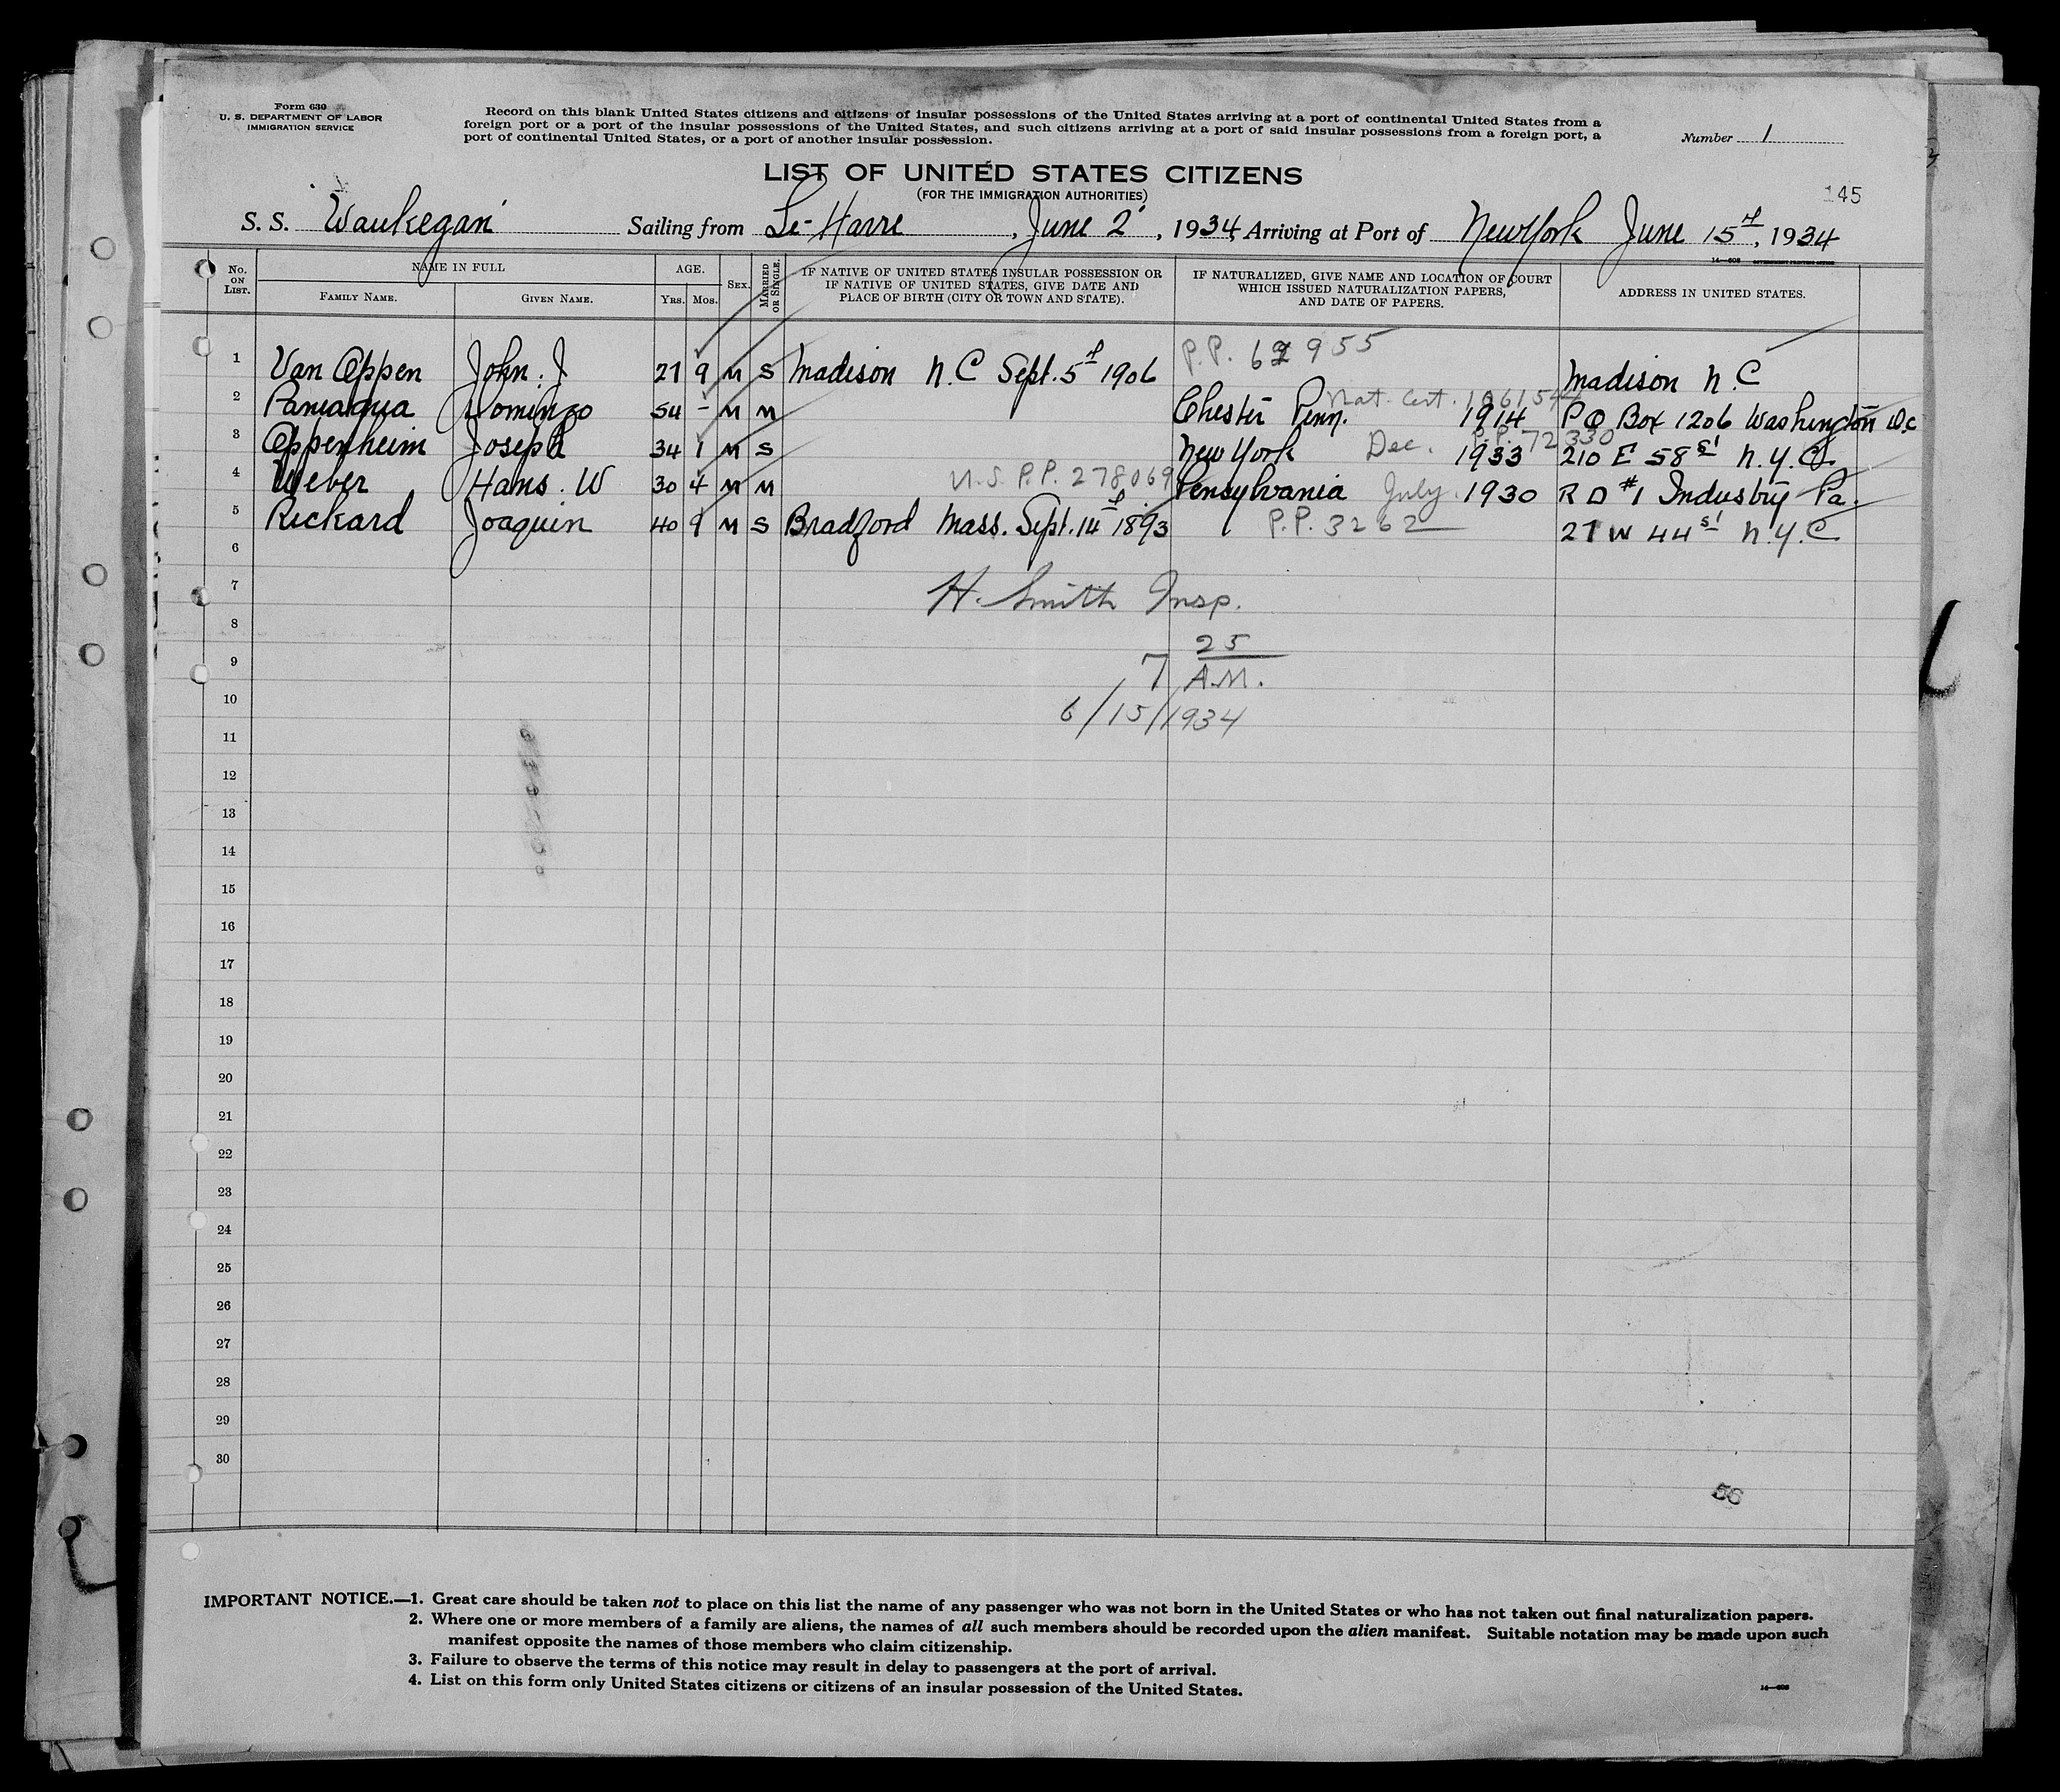 Form 630
U. S. DEPARTMENT OF LABOR
IMMIGRATION SERVICE
Record on this blank United States citizens and citizens of insular possessions of the United States arriving at a port of continental United States from a
foreign port or a port of the insular possessions of the United States, and such citizens arriving at a port of said insular possessions from a foreign port, a
port of continental United States, or a port of another insular possession.
Number 1
LIST OF UNITED STATES CITIZENS
(FOR THE IMMIGRATION AUTHORITIES)
145
S. S. Waukegan Sailing from Le-Havre, June 2, 1934, Arriving at Port of New York June 15th, 1934
14—608 GOVERNMENT PRINTING OFFICE
No. ON LIST. NAME IN FULL AGE. SEX. MARRIED OR SINGLE. IF NATIVE OF UNITED STATES INSULAR POSSESSION OR IF NATIVE OF UNITED STATES, GIVE DATE AND PLACE OF BIRTH (CITY OR TOWN AND STATE). IF NATURALIZED, GIVE NAME AND LOCATION OF COURT WHICH ISSUED NATURALIZATION PAPERS, AND DATE OF PAPERS. ADDRESS IN UNITED STATES.
FAMILY NAME. GIVEN NAME. YRS. MOS.
P.P. 62955
1 Van Oppen John. J 27 9 M S Madison N.C Sept. 5th 1906 Madison N.C
Nat. Cert.
2 Paniagua Domingo 54 - M M Chester Penn. 1914 P O Box 1206 Washington D.C
P.P. 72330
3 Oppenheim Joseph 34 1 M S New York Dec. 1933 210 E 58 st N.Y.C.
U.S. P.P. 278069
4 Weber Hans. W 30 4 M M Pensylvania July 1930 R D #1 Industry Pa.
5 Rickard Joaquin 40 9 M S Bradford Mass. Sept. 14th 1893 P.P. 3262 27 W 44 st N.Y.C
6
7 H. Smith Insp.
8
25
9 7 A.M.
10 6/15/1934
11
12
13
14
15
16
17
18
19
20
21
22
23
24
25
26
27
28
29
30
56
IMPORTANT NOTICE.—1. Great care should be taken not to place on this list the name of any passenger who was not born in the United States or who has not taken out final naturalization papers.
2. Where one or more members of a family are aliens, the names of all such members should be recorded upon the alien manifest. Suitable notation may be made upon such
manifest opposite the names of those members who claim citizenship.
3. Failure to observe the terms of this notice may result in delay to passengers at the port of arrival.
4. List on this form only United States citizens or citizens of an insular possession of the United States.
14—608